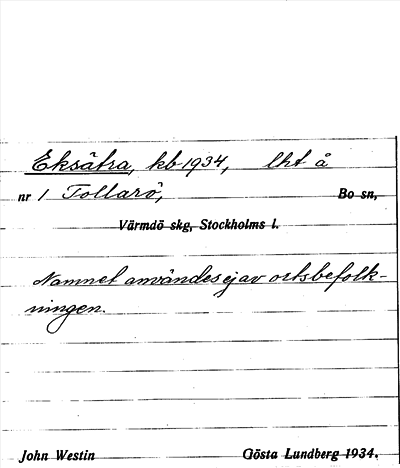 Eksätra, kb 1934, lht å
nr 1 Tollarö, Bo sn,
Värmdö skg, Stockholms l.
Namnet användes ej av ortsbefolk-
ningen.
John Westin Gösta Lundberg 1934.